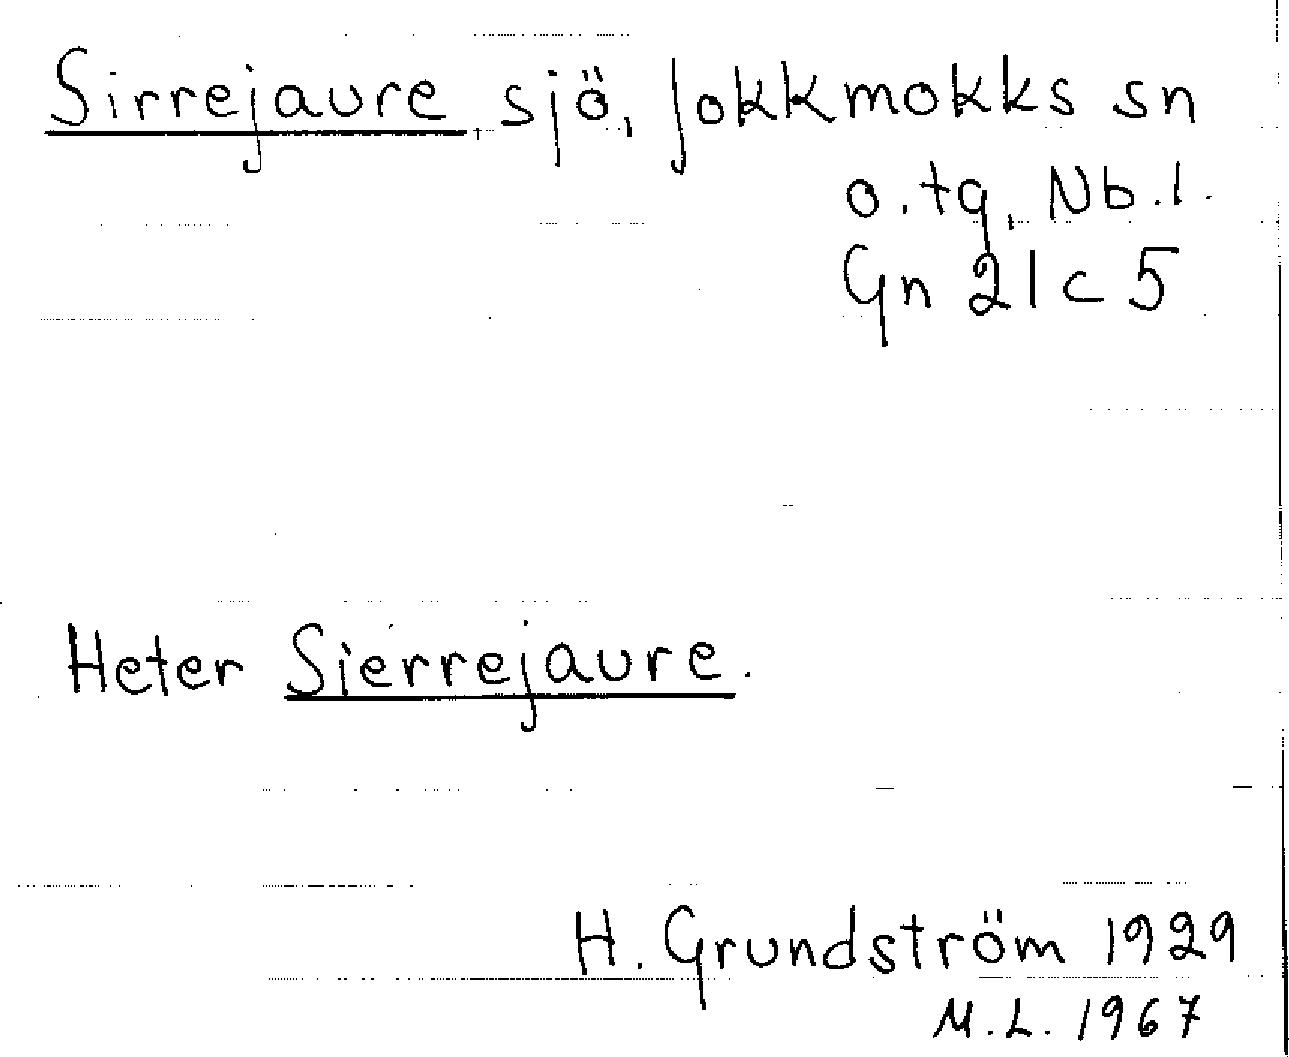 Sirrejaure, sjö, Jokkmokks sn
o. tg, Nb. l.
Gn 21 c 5
Heter Sierrejaure.
H. Grundström 1929
M. L. 1967